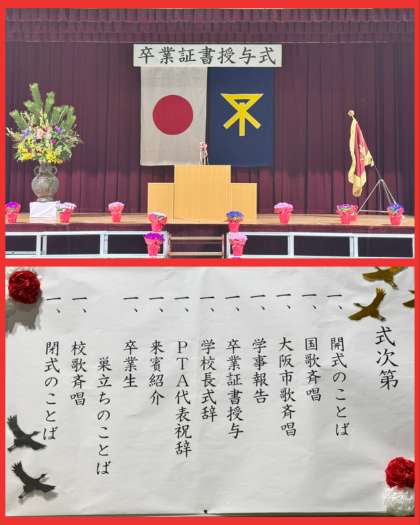 卒業証書授与式
式次第
一、開式のことば
一、国歌斉唱
一、大阪市歌斉唱
一、学事報告
一、卒業証書授与
一、学校長式辞
一、PTA代表祝辞
一、来賓紹介
一、卒業生
巣立ちのことば
一、校歌斉唱
一、閉式のことば